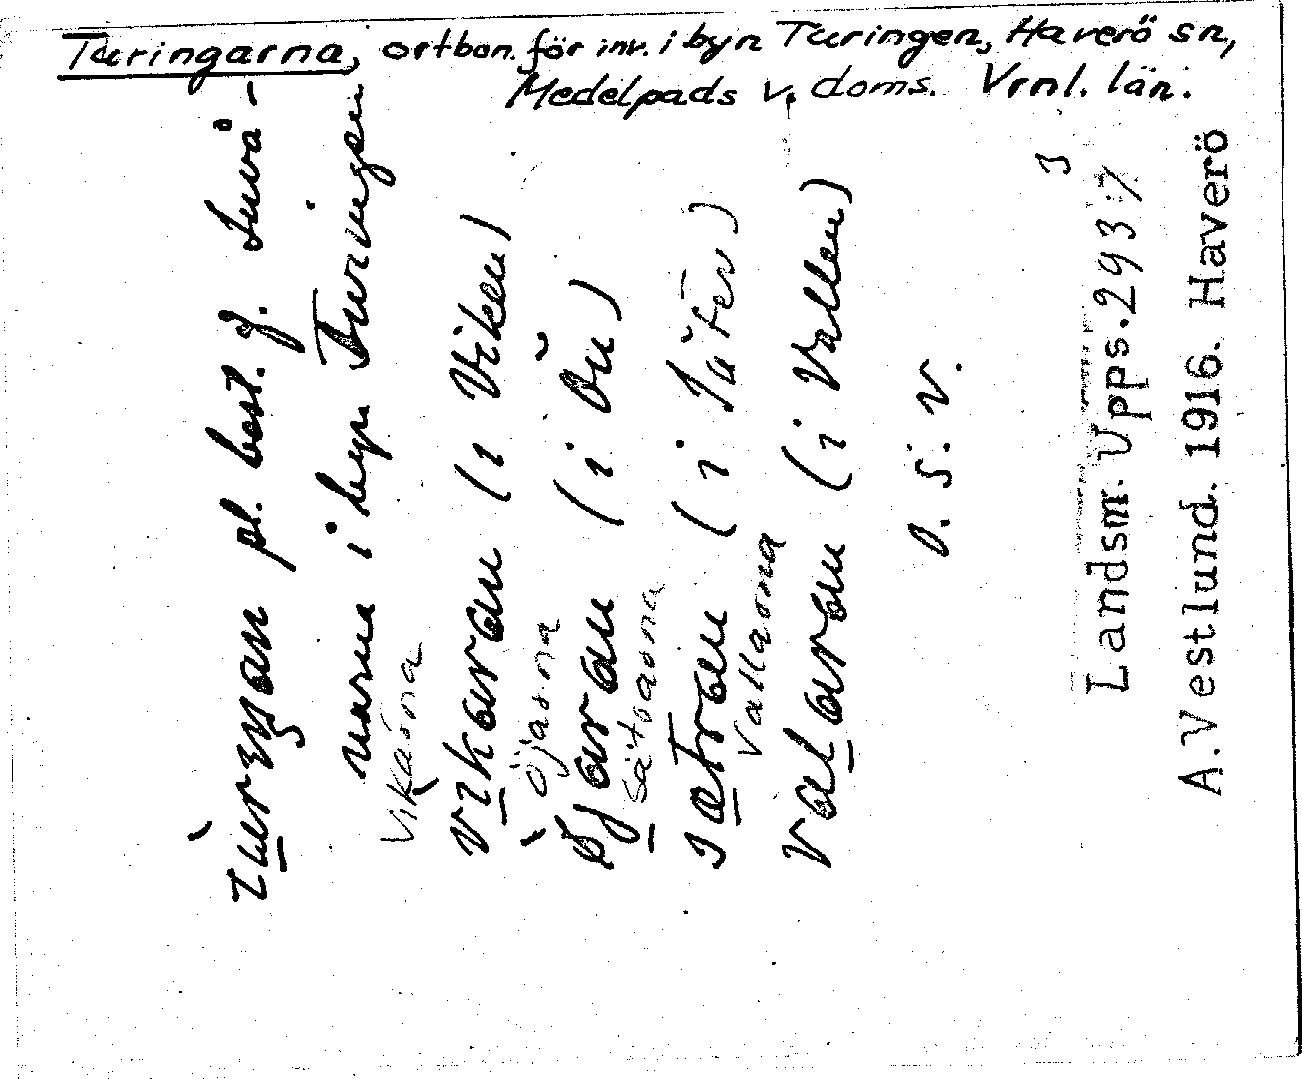 Turingarna, ortbon. för inv. i byn Turingen, Haverö sn,
Medelpads v. doms. Vrnl. län.
pl. best. f. Invå-
narna i byn Turingen
Vikarna
vikaran (i Viken)
Öjarna
øjaran (i Ön)
Sätrarna
sætran (i Säter)
Vallarna
valaran (i Vallen)
o. s. v.
3
Landsm. Upps. 2937
A.Vestlund. 1916. Haverö